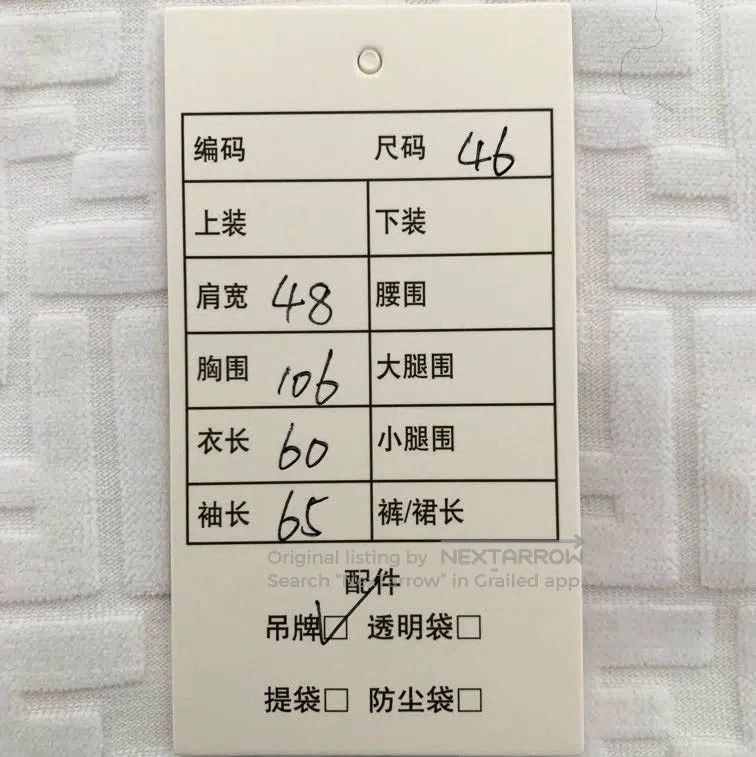 编码 尺码 46
上装 下装
肩宽 48 腰围
胸围 106 大腿围
衣长 60 小腿围
袖长 65 裤/裙长
Original listing by NEXTARROW
Search "Nextarrow" in Grailed app
配件
吊牌☑ 透明袋□
提袋□ 防尘袋□